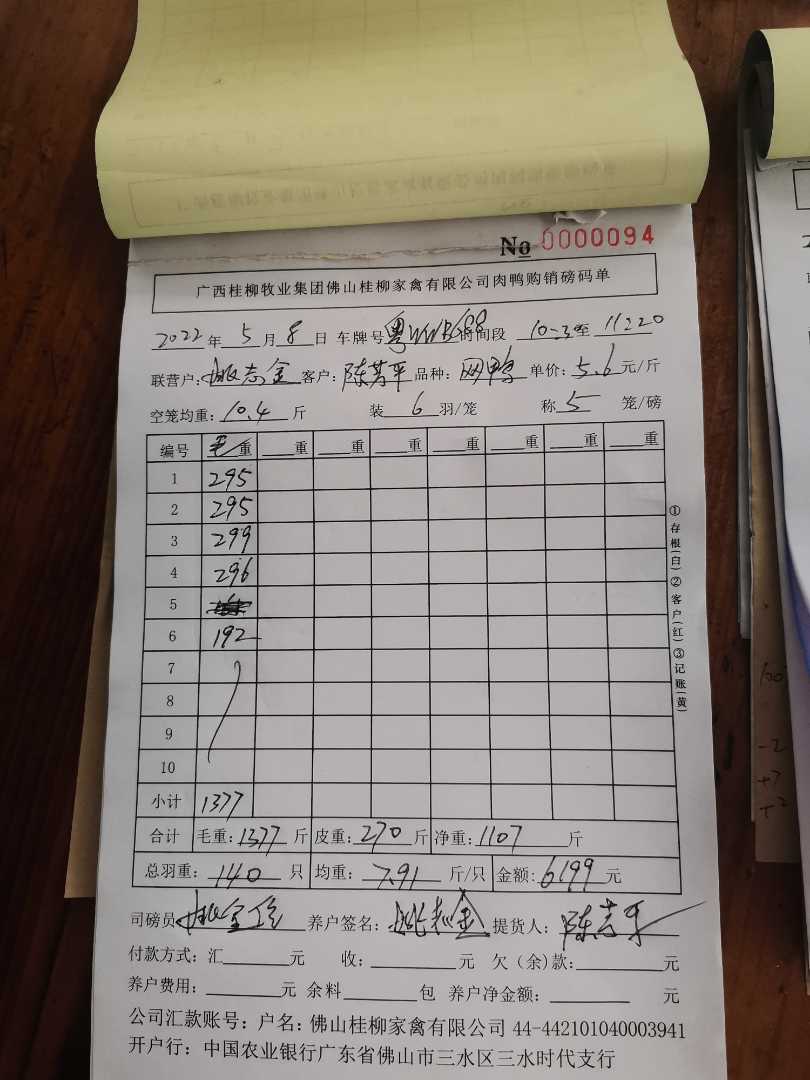 No 0000094
广西桂柳牧业集团佛山桂柳家禽有限公司肉鸭购销磅码单
2022年5月8日 车牌号 粤 时间段 10:30至11:20
联营户：姚志金 客户：陈芳平 品种： 单价：5.6元/斤
空笼均重：10.4斤 装6羽/笼 称5笼/磅
编号 毛重 重 重 重 重 重 重 重
1 295
2 295
3 299
4 296
5
6 192
7
8
9
10
小计 1377
合计 毛重：1377斤 皮重：270斤 净重：1107斤
总羽重：140只 均重：7.91斤/只 金额：6199元
司磅员 养户签名：姚志金 提货人：陈芳平
付款方式：汇 元 收： 元 欠（余）款： 元
养户费用： 元 余料 包 养户净金额： 元
公司汇款账号：户名：佛山桂柳家禽有限公司 44-442101040003941
开户行：中国农业银行广东省佛山市三水区三水时代支行
①存根(白)②客户(红)③记账(黄)